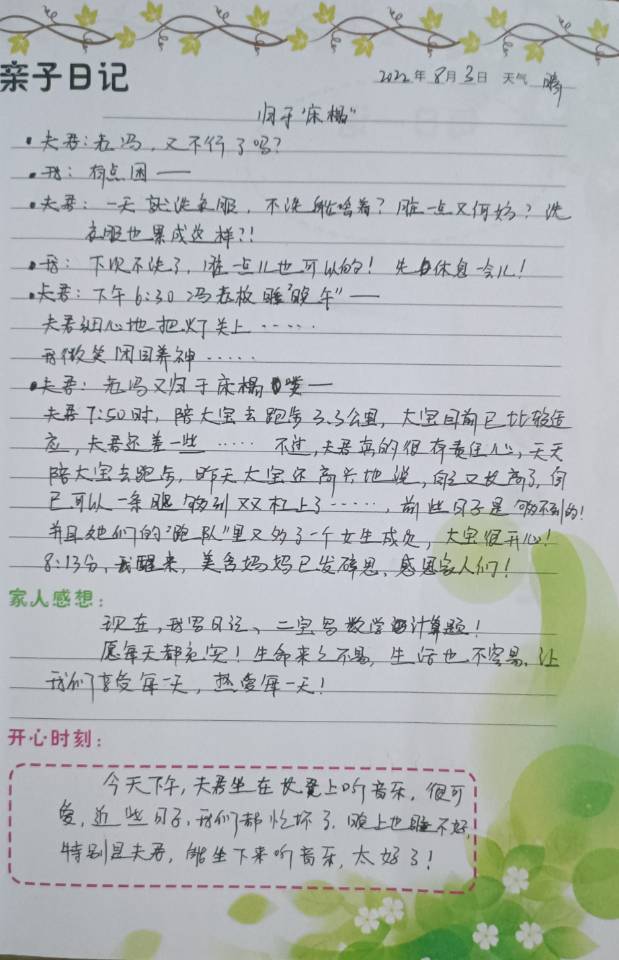 亲子日记
2022年8月3日 天气 晴
归于"床榻"
• 夫君：老冯，又不行了吗？
• 我：有点困——
• 夫君：一天就洗衣服，不洗能咋着？脏一点又何妨？洗
衣服也累成这样？！
• 我：下次不洗了，脏一点儿也可以的！先休息一会儿！
• 夫君：下午6:30冯老板睡"晚午"——
夫君细心地把灯关上……
我微笑闭目养神……
• 夫君：老冯又归于床榻喽——
夫君7:50时，陪大宝去跑步3.3公里，大宝目前已比较适
应，夫君还差一些……不过，夫君真的很有责任心，天天
陪大宝去跑步，昨天大宝还高兴地说，自己又长高了，自
己可以一条腿够到双杠上了……，前些日子是够不到的！
并且她们的"跑队"里又多了一个女生成员，大宝很开心！
8:13分，我醒来，美舍妈妈已发碎思，感恩家人们！
家人感想：
现在，我写日记、二宝写数学计算题！
愿每天都充实！生命来之不易，生活也不容易，让
我们享受每一天，热爱每一天！
开心时刻：
今天下午，夫君坐在长凳上听音乐，很可
爱，近些日子，我们都忙坏了，晚上也睡不好，
特别是夫君，能坐下来听音乐，太好了！